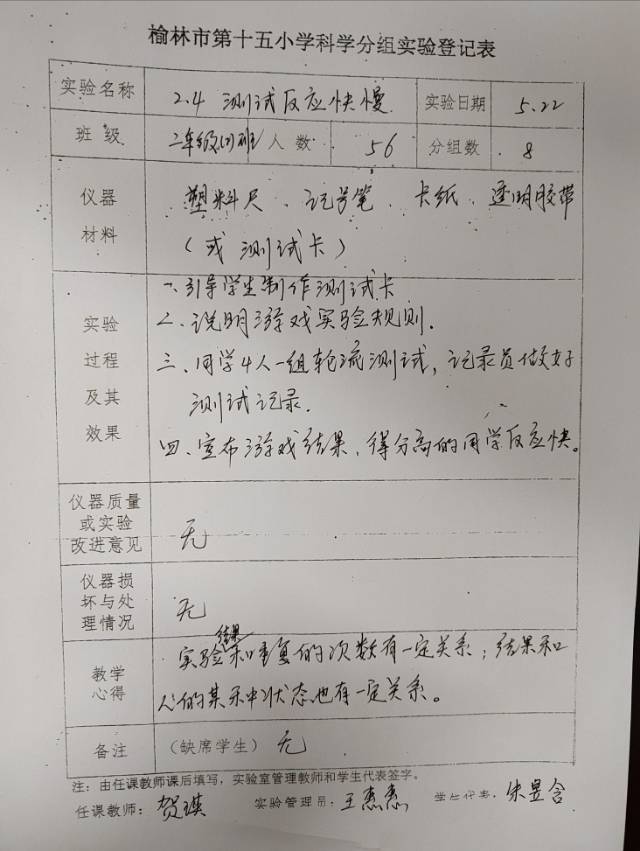 榆林市第十五小学科学分组实验登记表
实验名称 2.4 测试反应快慢 实验日期 5.22
班级 二年级(7)班 人数 56 分组数 8
仪器 塑料尺、记号笔、卡纸、透明胶带
材料 (或测试卡)
一、引导学生制作测试卡
实验 二、说明游戏实验规则.
过程 三、同学4人一组轮流测试,记录员做好
及其 测试记录.
效果 四、宣布游戏结果,得分高的同学反应快。
仪器质量
或实验
改进意见 无
仪器损
坏与处
理情况 无
教学 实验结果和重复的次数有一定关系;结果和
心得 人的某种状态也有一定关系。
备注 (缺席学生) 无
注:由任课教师课后填写,实验室管理教师和学生代表签字。
任课教师:贺琪 实验管理员:王惠惠 学生代表:朱昱含